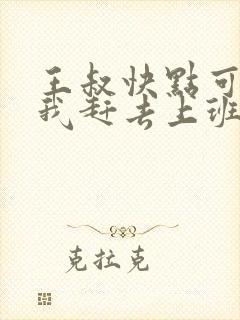 王叔快點可
我赶去上班
克拉克